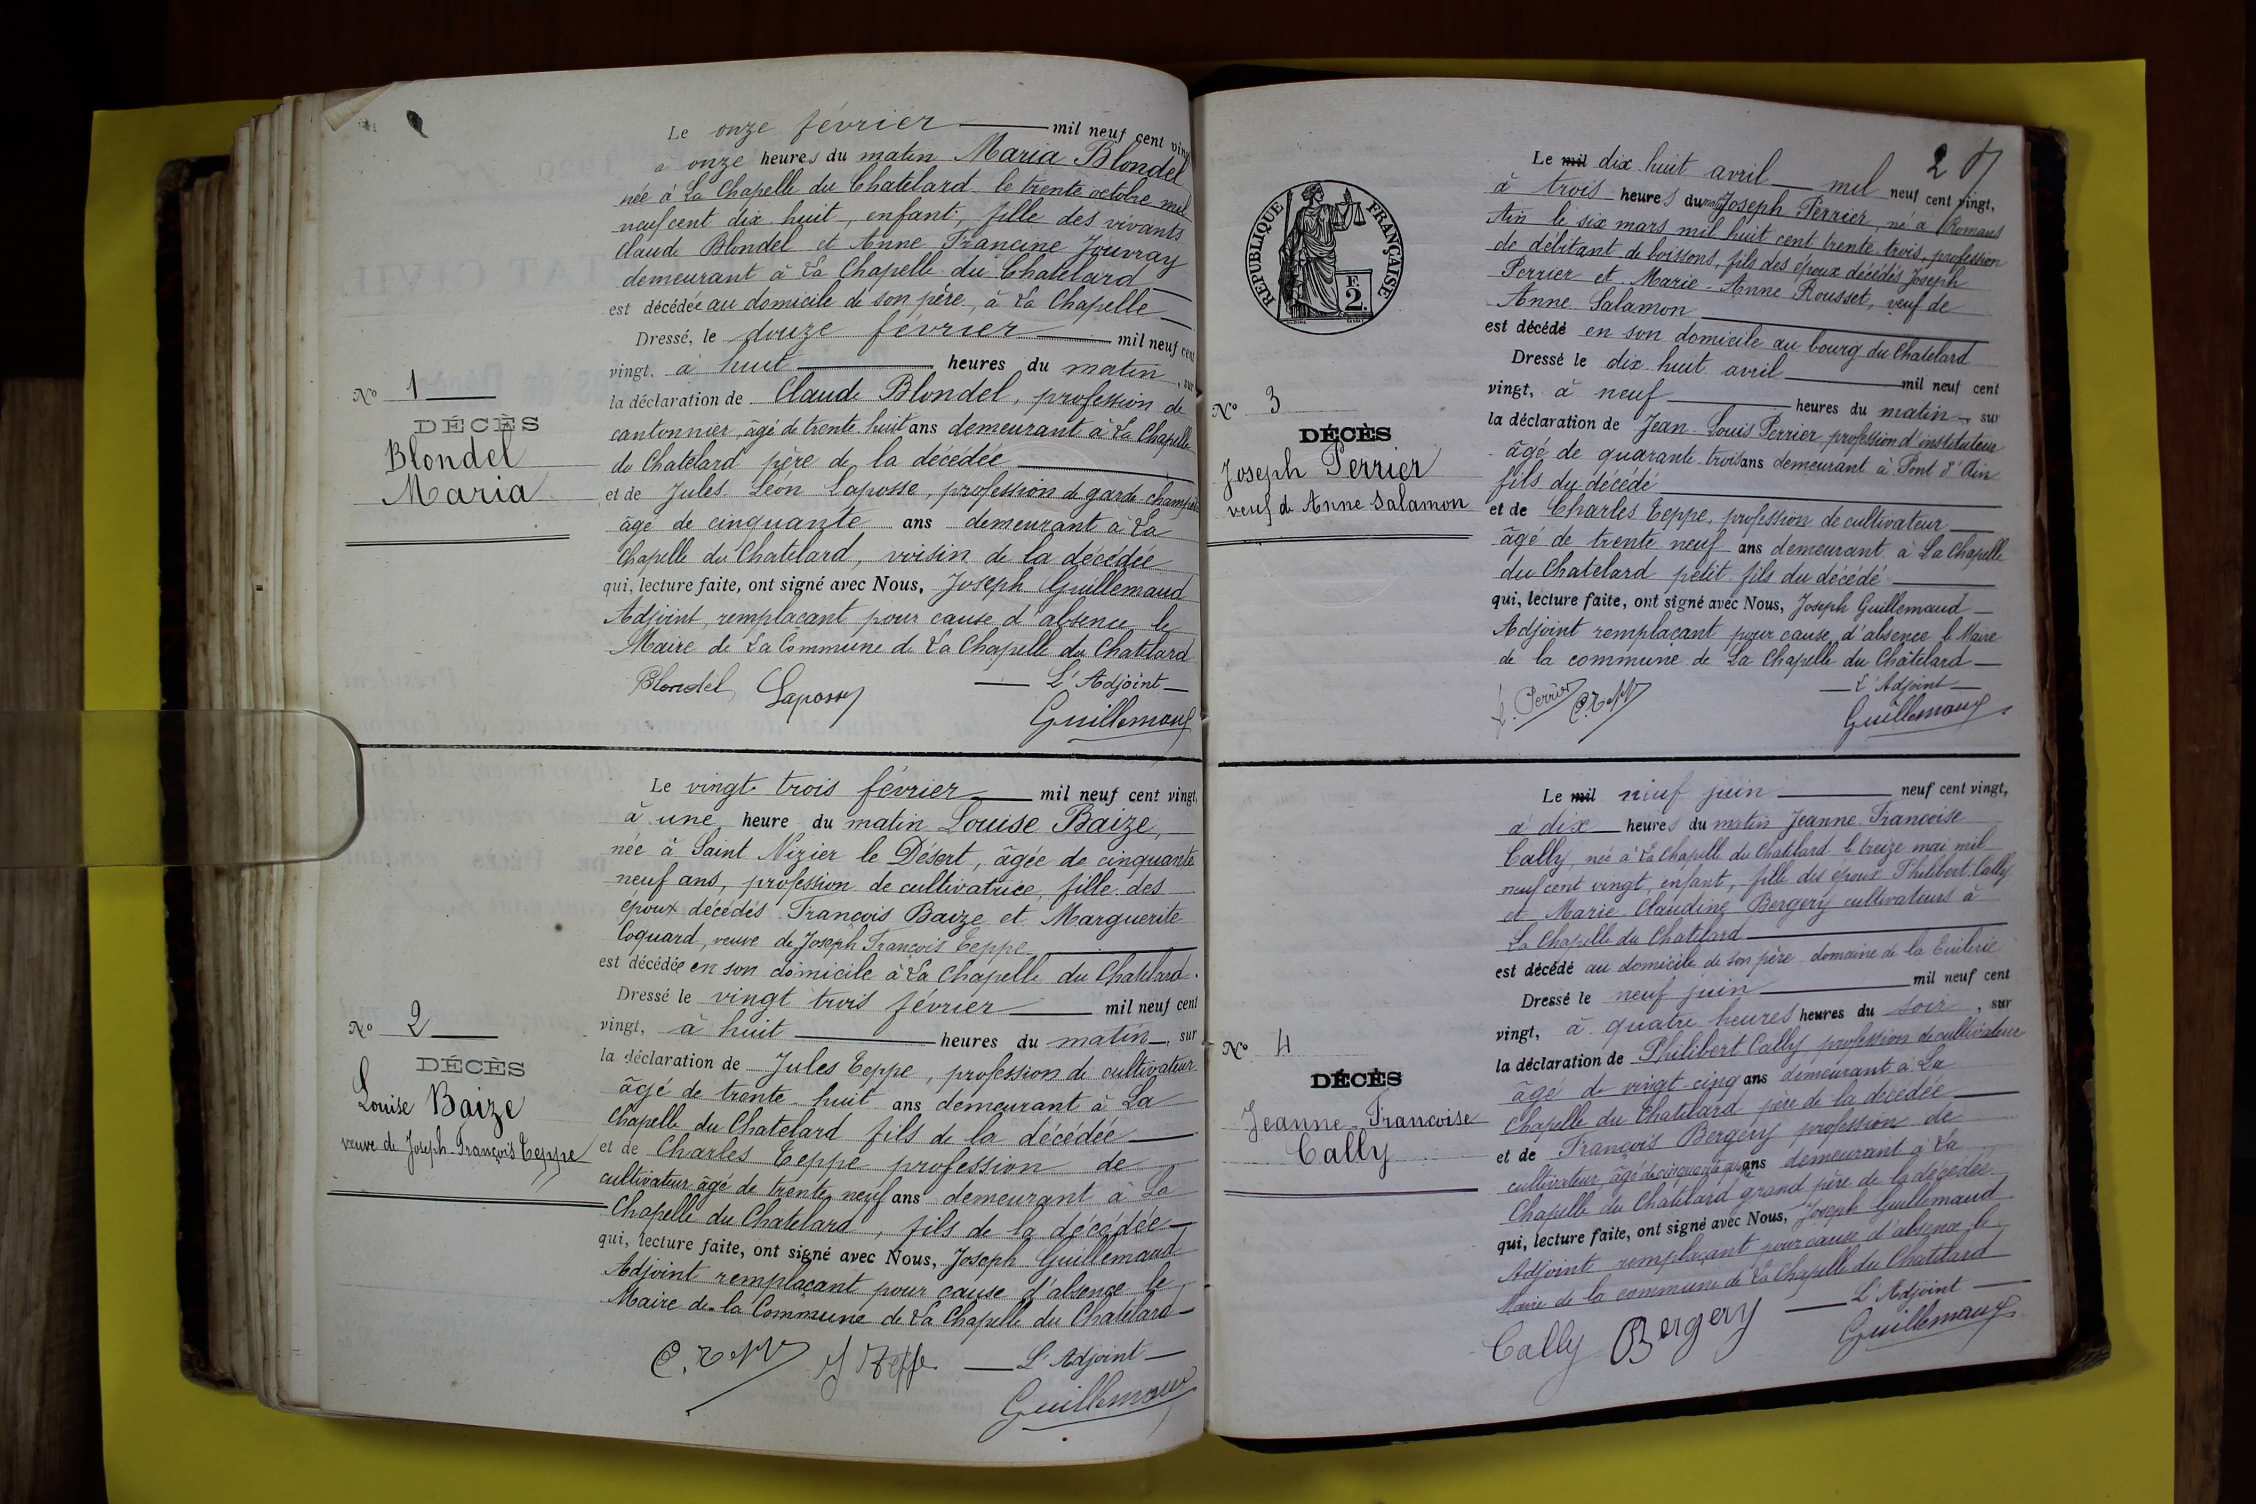 Le onze février mil neuf cent vingt
a onze heures du matin Maria Blondel
née à La Chapelle du Chatelard le trente octobre mil
neuf cent dix huit, enfant, fille des vivants
Claude Blondel et Anne Francine Jouvray
demeurant à La Chapelle du Chatelard
est décédée au domicile de son père, à La Chapelle
Dressé, le douze février mil neuf cent
vingt. à huit heures du matin, sur
la déclaration de Claude Blondel, profession de
cantonnier, âgé de trente huit ans demeurant à La Chapelle
du Chatelard père de la décédée
et de Jules Léon Laposse, profession de garde champêtre
âgé de cinquante ans demeurant à La
Chapelle du Chatelard, voisin de la décédée
qui, lecture faite, ont signé avec Nous, Joseph Guillemaud
Adjoint, remplaçant pour cause d'absence le
Maire de La Commune de La Chapelle du Chatelard
Blondel Laposse L'Adjoint
Guillemaud
No 1
DÉCÈS
Blondel
Maria
Le vingt trois février mil neuf cent vingt,
à une heure du matin Louise Baize,
née à Saint Nizier le Désert, âgée de cinquante
neuf ans, profession de cultivatrice, fille des
époux décédés François Baize et Marguerite
Coquard, veuve de Joseph François Teppe
est décédée en son domicile à La Chapelle du Chatelard.
Dressé le vingt trois février mil neuf cent
vingt, à huit heures du matin, sur
la déclaration de Jules Teppe, profession de cultivateur
âgé de trente huit ans demeurant à La
Chapelle du Chatelard fils de la décédée
et de Charles Teppe profession de
cultivateur âgé de trente neuf ans demeurant à La
Chapelle du Chatelard, fils de la décédée
qui, lecture faite, ont signé avec Nous, Joseph Guillemaud
Adjoint remplaçant pour cause d'absence le
Maire de la Commune de La Chapelle du Chatelard
L'Adjoint
Guillemaud
No 2
DÉCÈS
Louise Baize
veuve de Joseph-François Teppe
2
REPUBLIQUE FRANÇAISE
E
2.
Le mil dix huit avril mil neuf cent vingt,
à trois heures du matin Joseph Perrier, né à Romans
Ain le six mars mil huit cent trente trois, profession
de débitant de boissons, fils des époux décédés Joseph
Perrier et Marie-Anne Rousset, veuf de
Anne Salamon
est décédé en son domicile au bourg du Chatelard
Dressé le dix huit avril mil neuf cent
vingt, à neuf heures du matin, sur
la déclaration de Jean-Louis Perrier profession d'instituteur
âgé de quarante trois ans demeurant à Pont d'Ain
fils du décédé
et de Charles Teppe, profession de cultivateur
âgé de trente neuf ans demeurant à La Chapelle
du Chatelard petit fils du décédé
qui, lecture faite, ont signé avec Nous, Joseph Guillemaud
Adjoint remplaçant pour cause d'absence le Maire
de la commune de La Chapelle du Châtelard
Perrier L'Adjoint
Guillemaud
No 3
DÉCÈS
Joseph Perrier
veuf de Anne Salamon
Le mil neuf juin neuf cent vingt,
à dix heures du matin Jeanne Françoise
Cally, née à La Chapelle du Chatelard le treize mai mil
neuf cent vingt, enfant, fille des époux Philibert Cally
et Marie Claudine Bergery cultivateurs à
La Chapelle du Chatelard
est décédé au domicile de son père domaine de la Tuilerie
Dressé le neuf juin mil neuf cent
vingt, à quatre heures heures du soir, sur
la déclaration de Philibert Cally profession de cultivateur
âgé de vingt-cinq ans demeurant à La
Chapelle du Chatelard père de la décédée
et de François Bergery profession de
cultivateur, âgé de cinquante ans demeurant à La
Chapelle du Chatelard grand père de la décédée
qui, lecture faite, ont signé avec Nous, Joseph Guillemaud
Adjoint remplaçant pour cause d'absence le
Maire de la commune de La Chapelle du Chatelard
Cally Bergery L'Adjoint
Guillemaud
No 4
DÉCÈS
Jeanne-Francoise
Cally